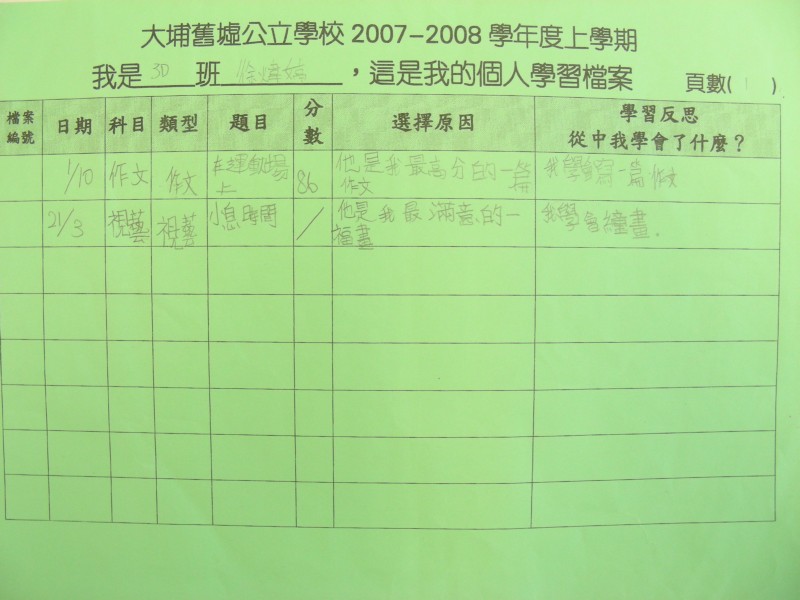 大埔舊墟公立學校 2007-2008 學年度上學期
我是 3D 班 徐煒婷 ，這是我的個人學習檔案 頁數( 1 )
檔案編號 日期 科目 類型 題目 分數 選擇原因 學習反思 從中我學會了什麼？
1/10 作文 作文 在運動場上 86 他是我最高分的一篇作文 我學會寫一篇作文
21/3 視藝 視藝 小息時間 / 他是我最滿意的一福畫 我學會繪畫.